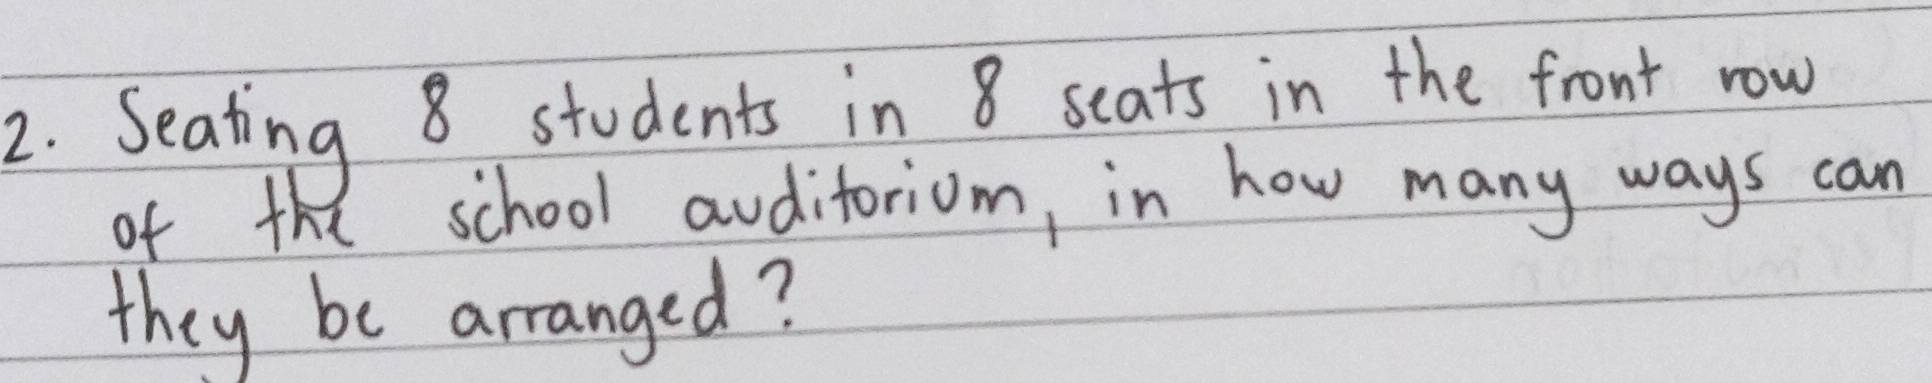 2. Seating 8 students in 8 seats in the front row
of the school auditorium, in how many ways can
they be arranged?